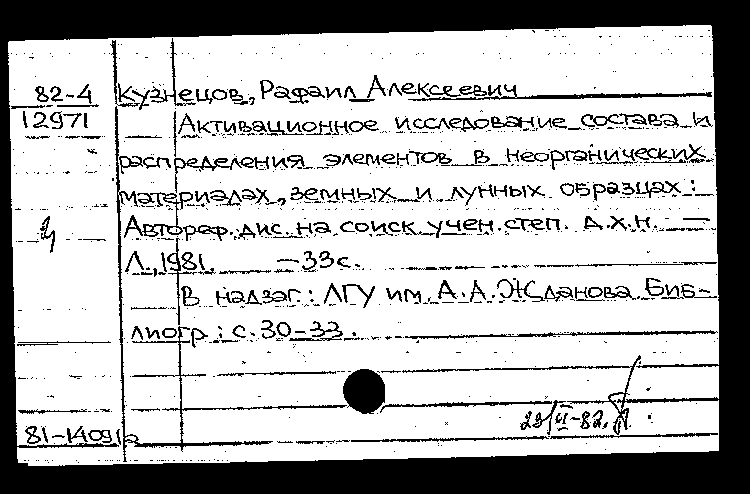 82-4 Кузнецов, Рафаил Алексеевич
12971 Активационное исследование состава и
распределения элементов в неорганических
материалах, земных и лунных образцах:
Автореф. дис. на соиск учен. степ. д.х.н. —
Л., 1981. —33с.
В надзаг.: ЛГУ им. А.А.Жданова. Биб-
лиогр.: с.30-33.
81-14091а